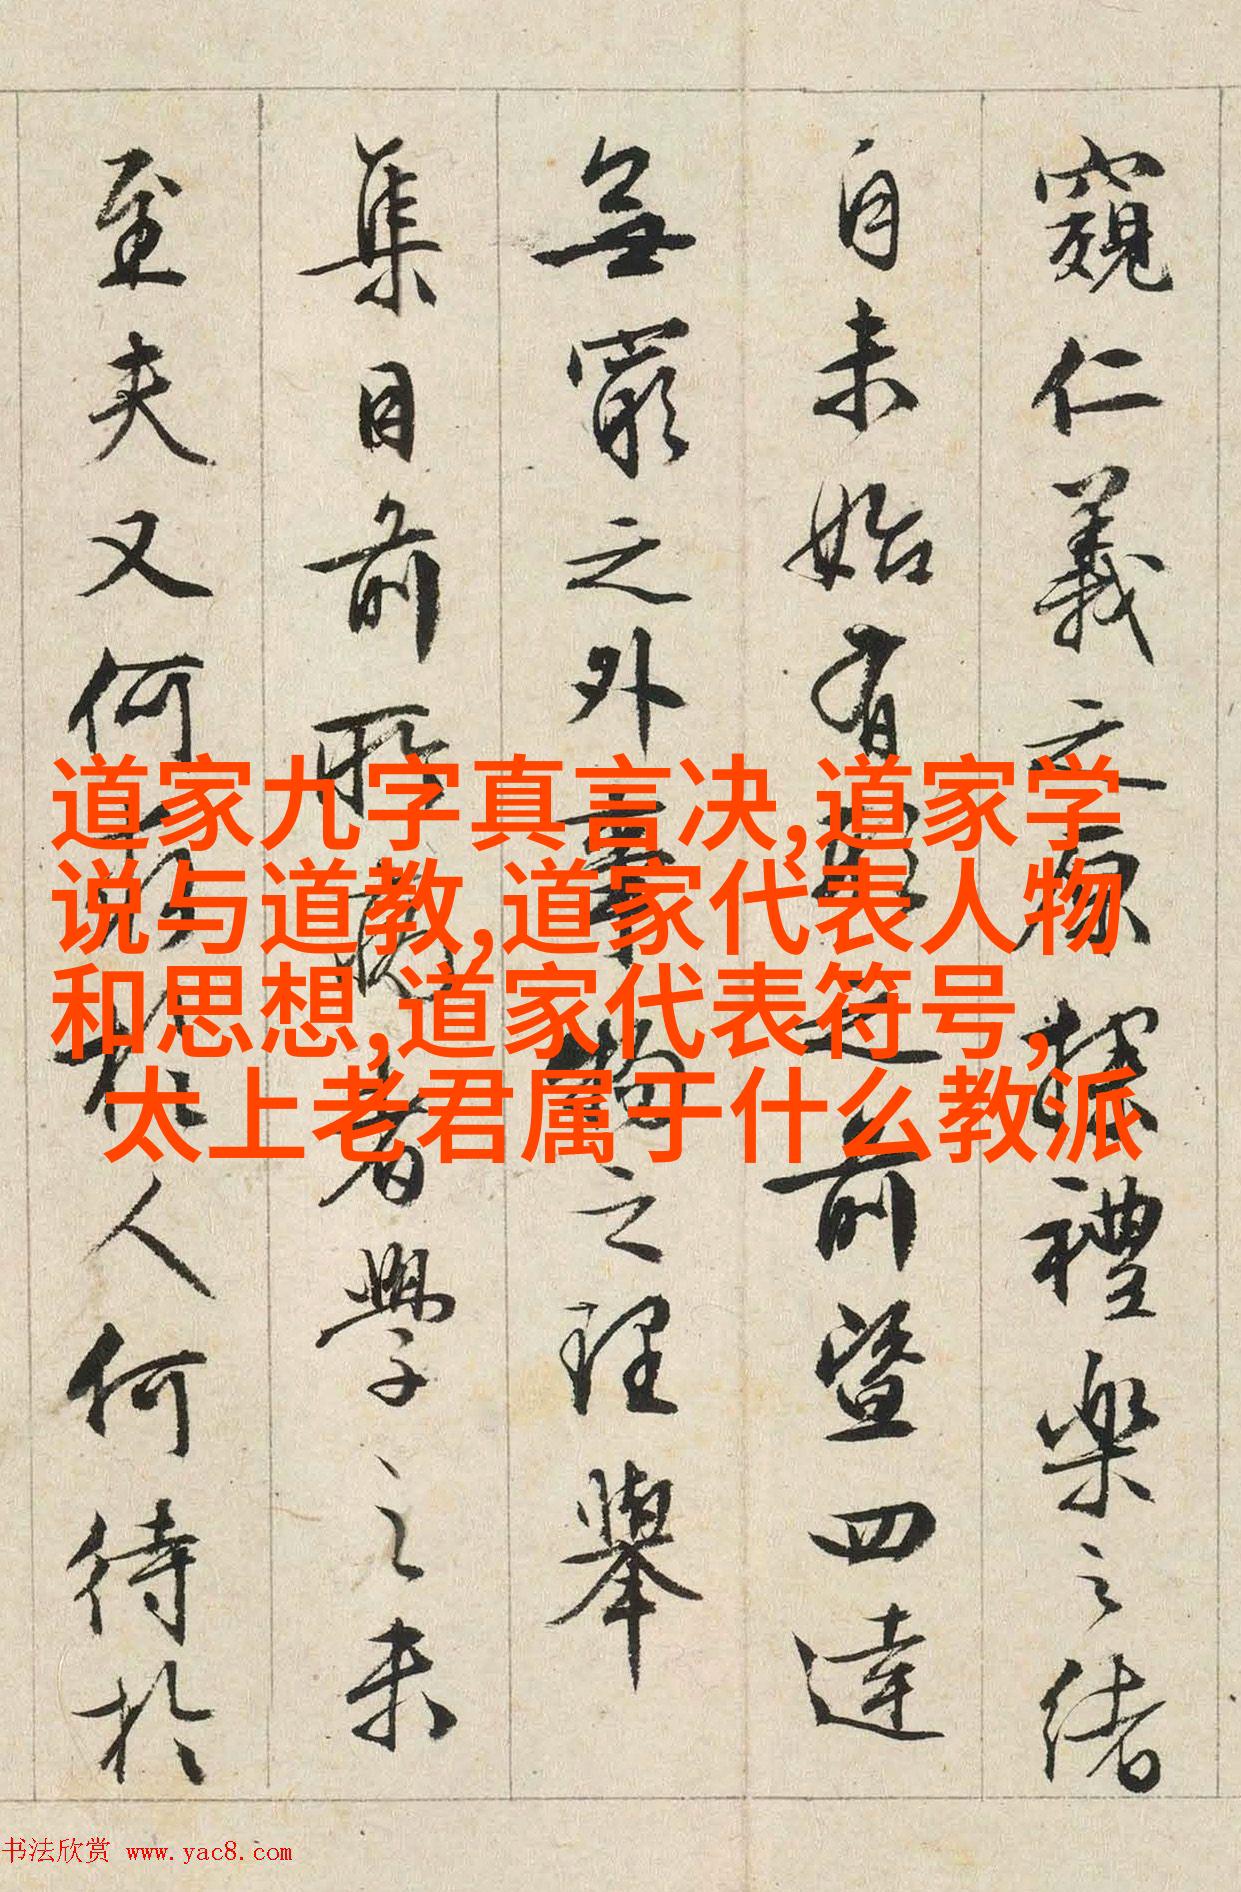 窺仁義之原擷禮樂之緒
自未始有之前暨四達
無窮之外事物之理舉
集目前所讀者學之未
至夫又何於人何待於
道家九字真言决,道家学
说与道教,道家代表人物
和思想,道家代表符号,
太上老君属于什么教派
书法欣赏 www.yac8.com